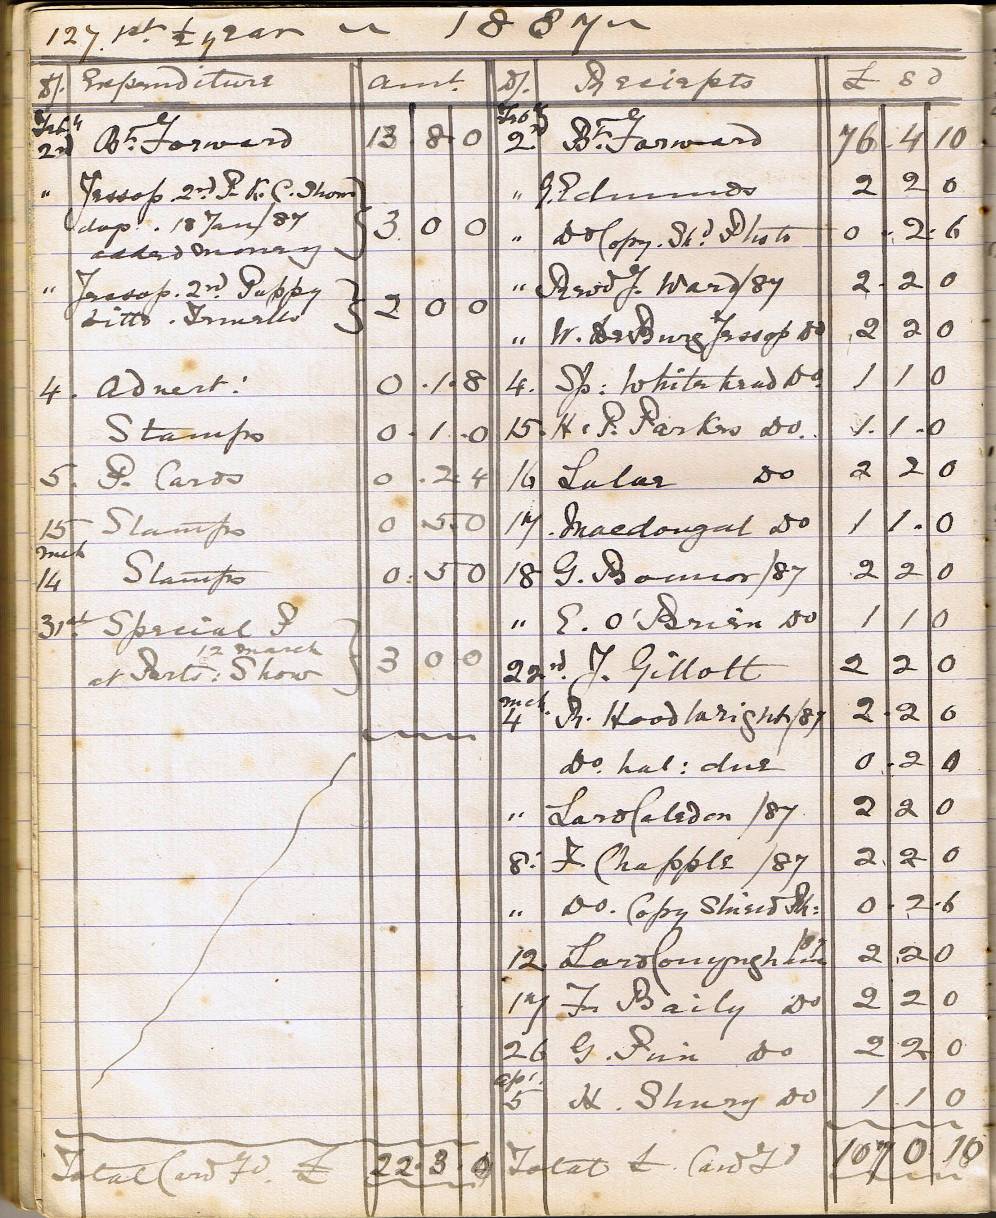 127. 1st ½ year 1887
D/. Expenditure amt. D/. Reciepts £ s d
Feby 2nd Bt. Forward 13 8 0 Feby 2nd Bt. Forward 76 4 10
" Jessop. 2nd P. K. C. Show " J. Edmunds 2 2 0
18 Jan/87 3 0 0 " Do Copy. Shd. Photo 0 2 6
added money
" Jessop. 2nd Puppy " Revd J. Ward/87 2 2 0
Ditto. 2 0 0 " W. De Burg Jessop Do 2 2 0
4. Advert: 0 1 8 4. Sp: Whitehead Do 1 1 0
Stamps 0 1 0 15. H. P. Parkes Do. 1 1 0
5. P. Cards 0 2 4 16 Do 2 2 0
15 Stamps 0 5 0 17. Macdougal Do 1 1 0
mch 14 Stamps 0 5 0 18 G. Bonnor/87 2 2 0
31st Special P " E. O'Brien Do 1 1 0
12 march
at Ports: Show 3 0 0 22nd. J. Gillott 2 2 0
mch. 4 R. Hoodwright/87 2 2 0
Do. bal: due 0 2 0
" Lord Caledon /87 2 2 0
8. F. Chapple /87 2 2 0
" Do. Copy Shield Ph: 0 2 6
12 Lord Conyngham /87 2 2 0
17 F. Baily Do 2 2 0
26 G. Pim Do 2 2 0
apl. 5 H. Shury Do 1 1 0
Total Card Fd. £ 22 3 0 Total £. Card Fd 107 0 10